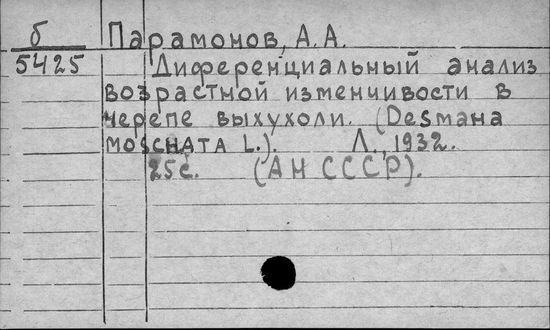 б Парамонов, А.А.
5425 Диференциальный анализ
возрастной изменчивости в
черепе выхухоли. (Desmana
moschata L.). Л., 1932.
25с. (АН СССР).